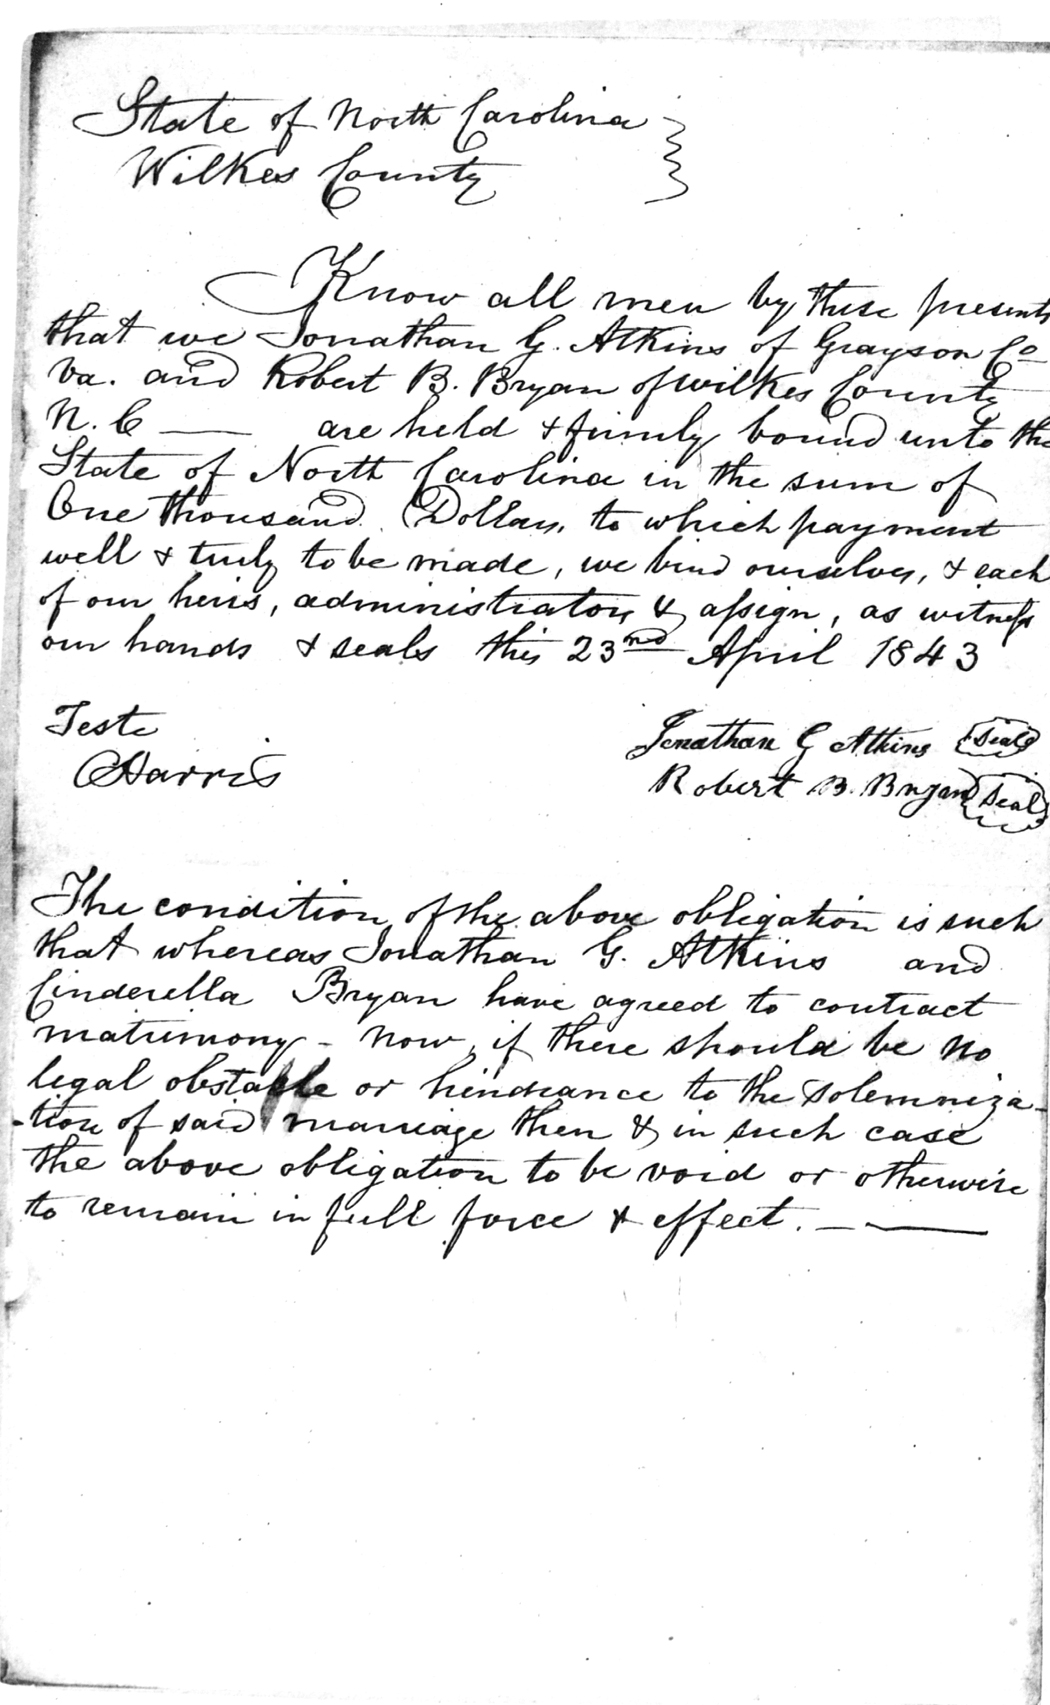 State of North Carolina
Wilkes County
Know all men by these presents
that we Jonathan G. Atkins of Grayson Co
Va. and Robert B. Bryan of Wilkes County
N. C — are held & firmly bound unto the
State of North Carolina in the sum of
One thousand Dollars, to which payment
well & truly to be made, we bind ourselves, & each
of our heirs, administrators & assigns, as witness
our hands & seals this 23nd April 1843
Teste
CHarris
Jonathan G Atkins Seal
Robert B. Bryan Seal
The condition of the above obligation is such
that whereas Jonathan G. Atkins and
Cinderella Bryan have agreed to contract
matrimony - Now, if there should be no
legal obstacle or hindrance to the solemniza-
-tion of said marriage then & in such case
the above obligation to be void or otherwise
to remain in full force & effect. — —